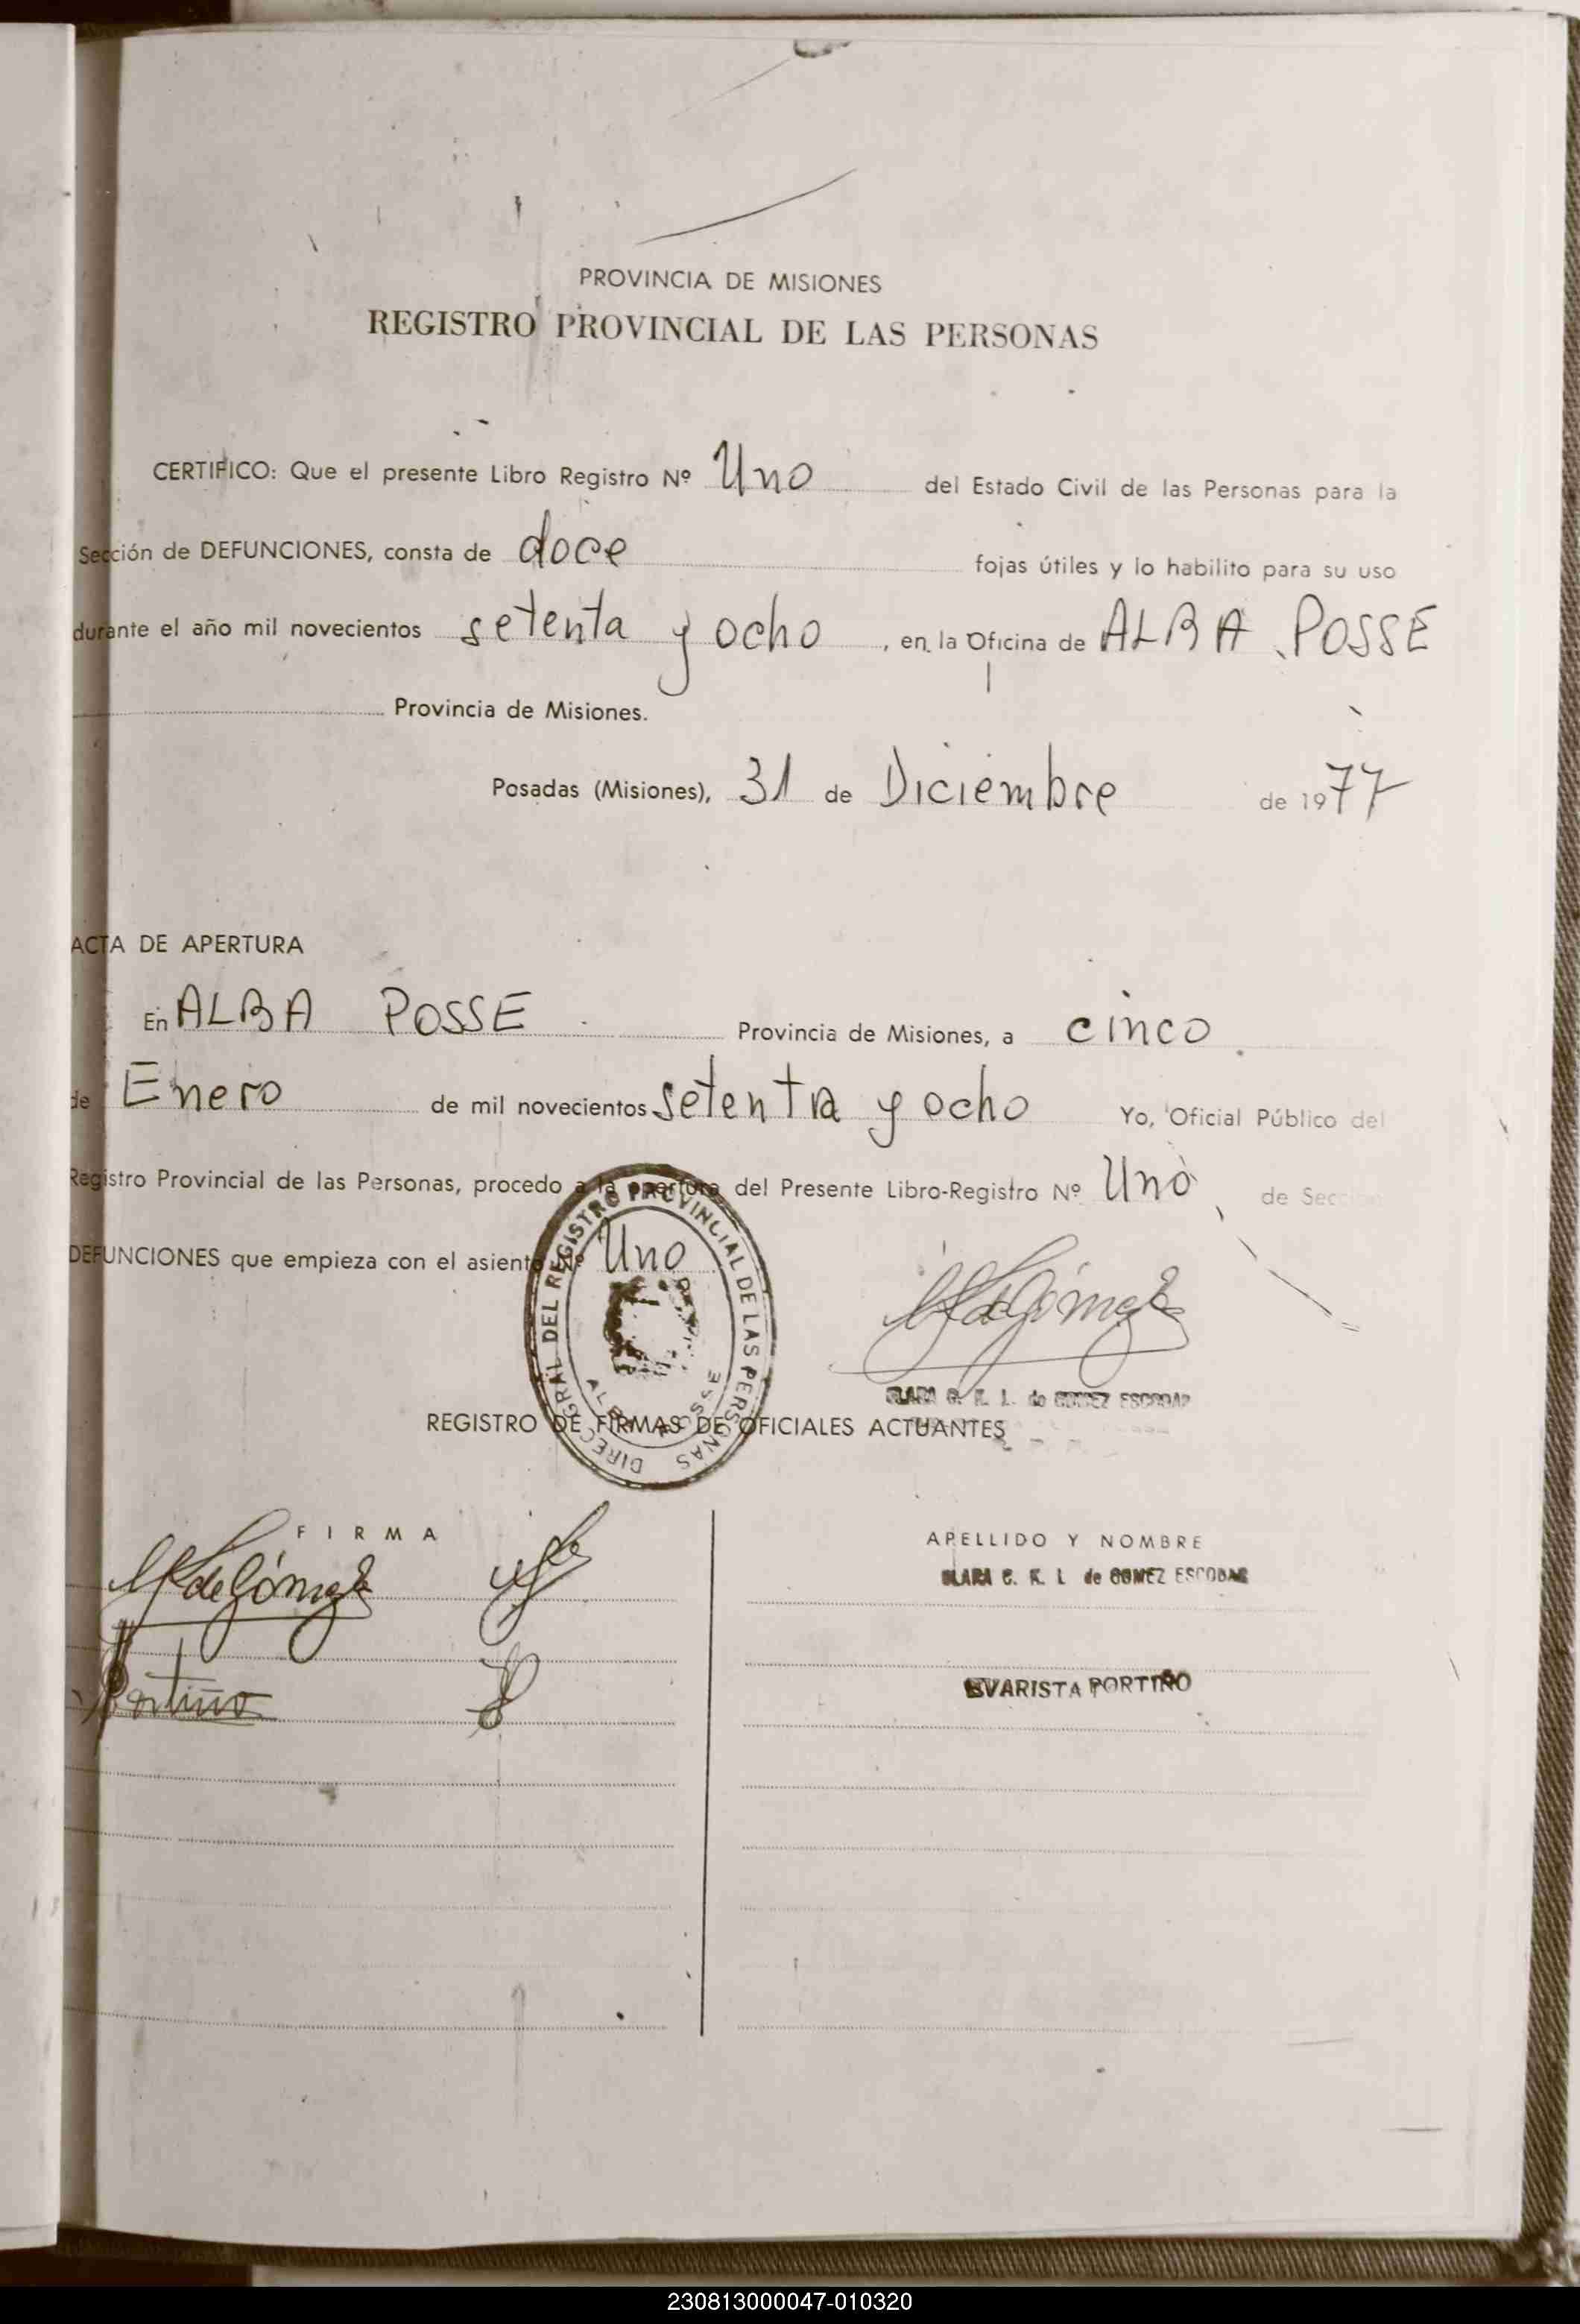 PROVINCIA DE MISIONES
REGISTRO PROVINCIAL DE LAS PERSONAS
CERTIFICO: Que el presente Libro Registro Nº Uno del Estado Civil de las Personas para la
Sección de DEFUNCIONES, consta de doce fojas útiles y lo habilito para su uso
durante el año mil novecientos setenta y ocho, en la Oficina de ALBA POSSE
Provincia de Misiones.
Posadas (Misiones), 31 de Diciembre de 1977
ACTA DE APERTURA
En ALBA POSSE Provincia de Misiones, a cinco
de Enero de mil novecientos setenta y ocho Yo, Oficial Público del
Registro Provincial de las Personas, procedo a la apertura del Presente Libro-Registro Nº Uno de
DEFUNCIONES que empieza con el asiento Nº Uno
DEL REGISTRO PROVINCIAL DE LAS PERSONAS
ALBA POSSE
CLARA de GOMEZ ESCOBAR
REGISTRO DE FIRMAS DE OFICIALES ACTUANTES
FIRMA
APELLIDO Y NOMBRE
CLARA C. K. L. de GOMEZ ESCOBAR
de Gómez
Portiño
EVARISTA PORTIÑO
230813000047-010320